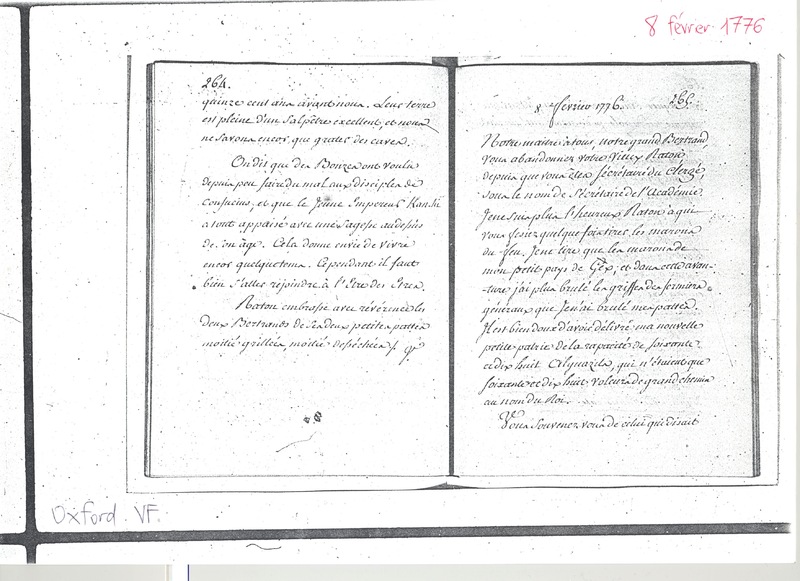 8 février 1776
264.
quinze cent ans avant nous. Leur terre
est pleine d'un Salpêtre excellent, et nous
ne savons encor, que grater des caves.
On dit que des Bonzes ont voulu
depuis peu faire du mal aux disciples de
Confucius, et que le Jeune Empereur Kan-hi
a tout appaisé avec une Sagesse au dessus
de son âge. Cela donne envie de vivre
encor quelque tems. Cependant il faut
bien s'aller rejoindre à l'Etre des Etres.
Raton embrasse avec révérence les
deux Bertrands de Ses deux petites pattes
moitié grillées, moitié desséchées
8 février 1776. 265.
Notre maître à tous, notre grand Bertrand
vous abandonnez votre vieux Raton
depuis que vous êtes Sécrétaire du clergé
sous le nom de Sécrétaire de l'Académie.
Je ne suis plus l'heureux Raton à qui
vous fesiez quelque fois tirer les marons
du feu. Je ne tire que les marons de
mon petit pays de Gex, et dans cette avan-
-ture j'ai plus brulé les griffes des fermiers
généraux que Je n'ai brulé mes pattes.
Il est bien doux d'avoir délivré ma nouvelle
petite patrie de la rapacité de soixante
et dix huit Alguazils, qui n'étaient que
soixante et dix huit voleurs de grand chemin
au nom du Roi.
Vous souvenez vous de celui qui disait
Oxford VF.